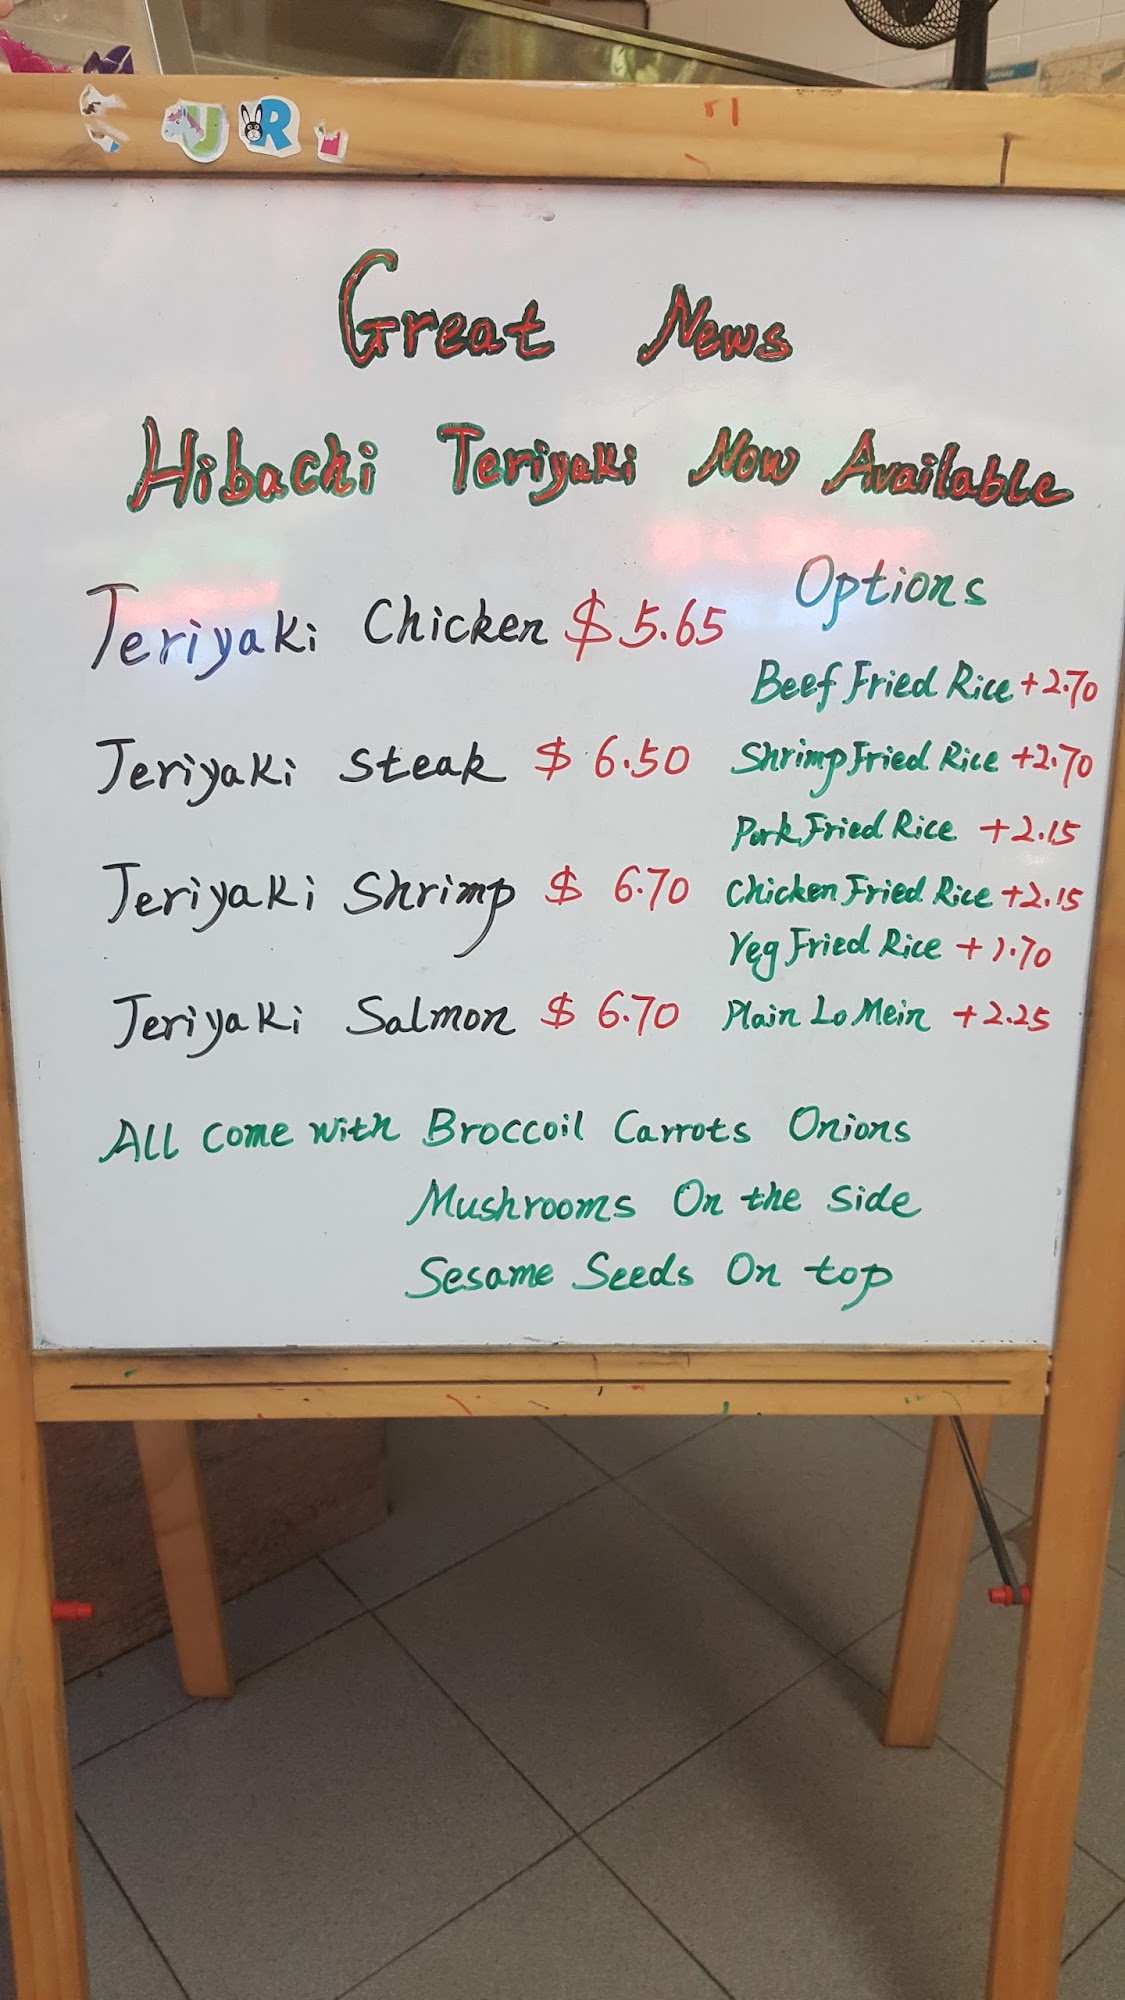 UR
Great News
Hibachi Teriyaki Now Available
Teriyaki Chicken $5.65
Teriyaki Steak $6.50
Teriyaki Shrimp $6.70
Teriyaki Salmon $6.70
Options
Beef Fried Rice +2.70
Shrimp Fried Rice +2.70
Pork Fried Rice +2.15
Chicken Fried Rice +2.15
Veg Fried Rice +1.70
Plain Lo Mein +2.25
All come with Broccoil Carrots Onions
Mushrooms On the side
Sesame Seeds On top